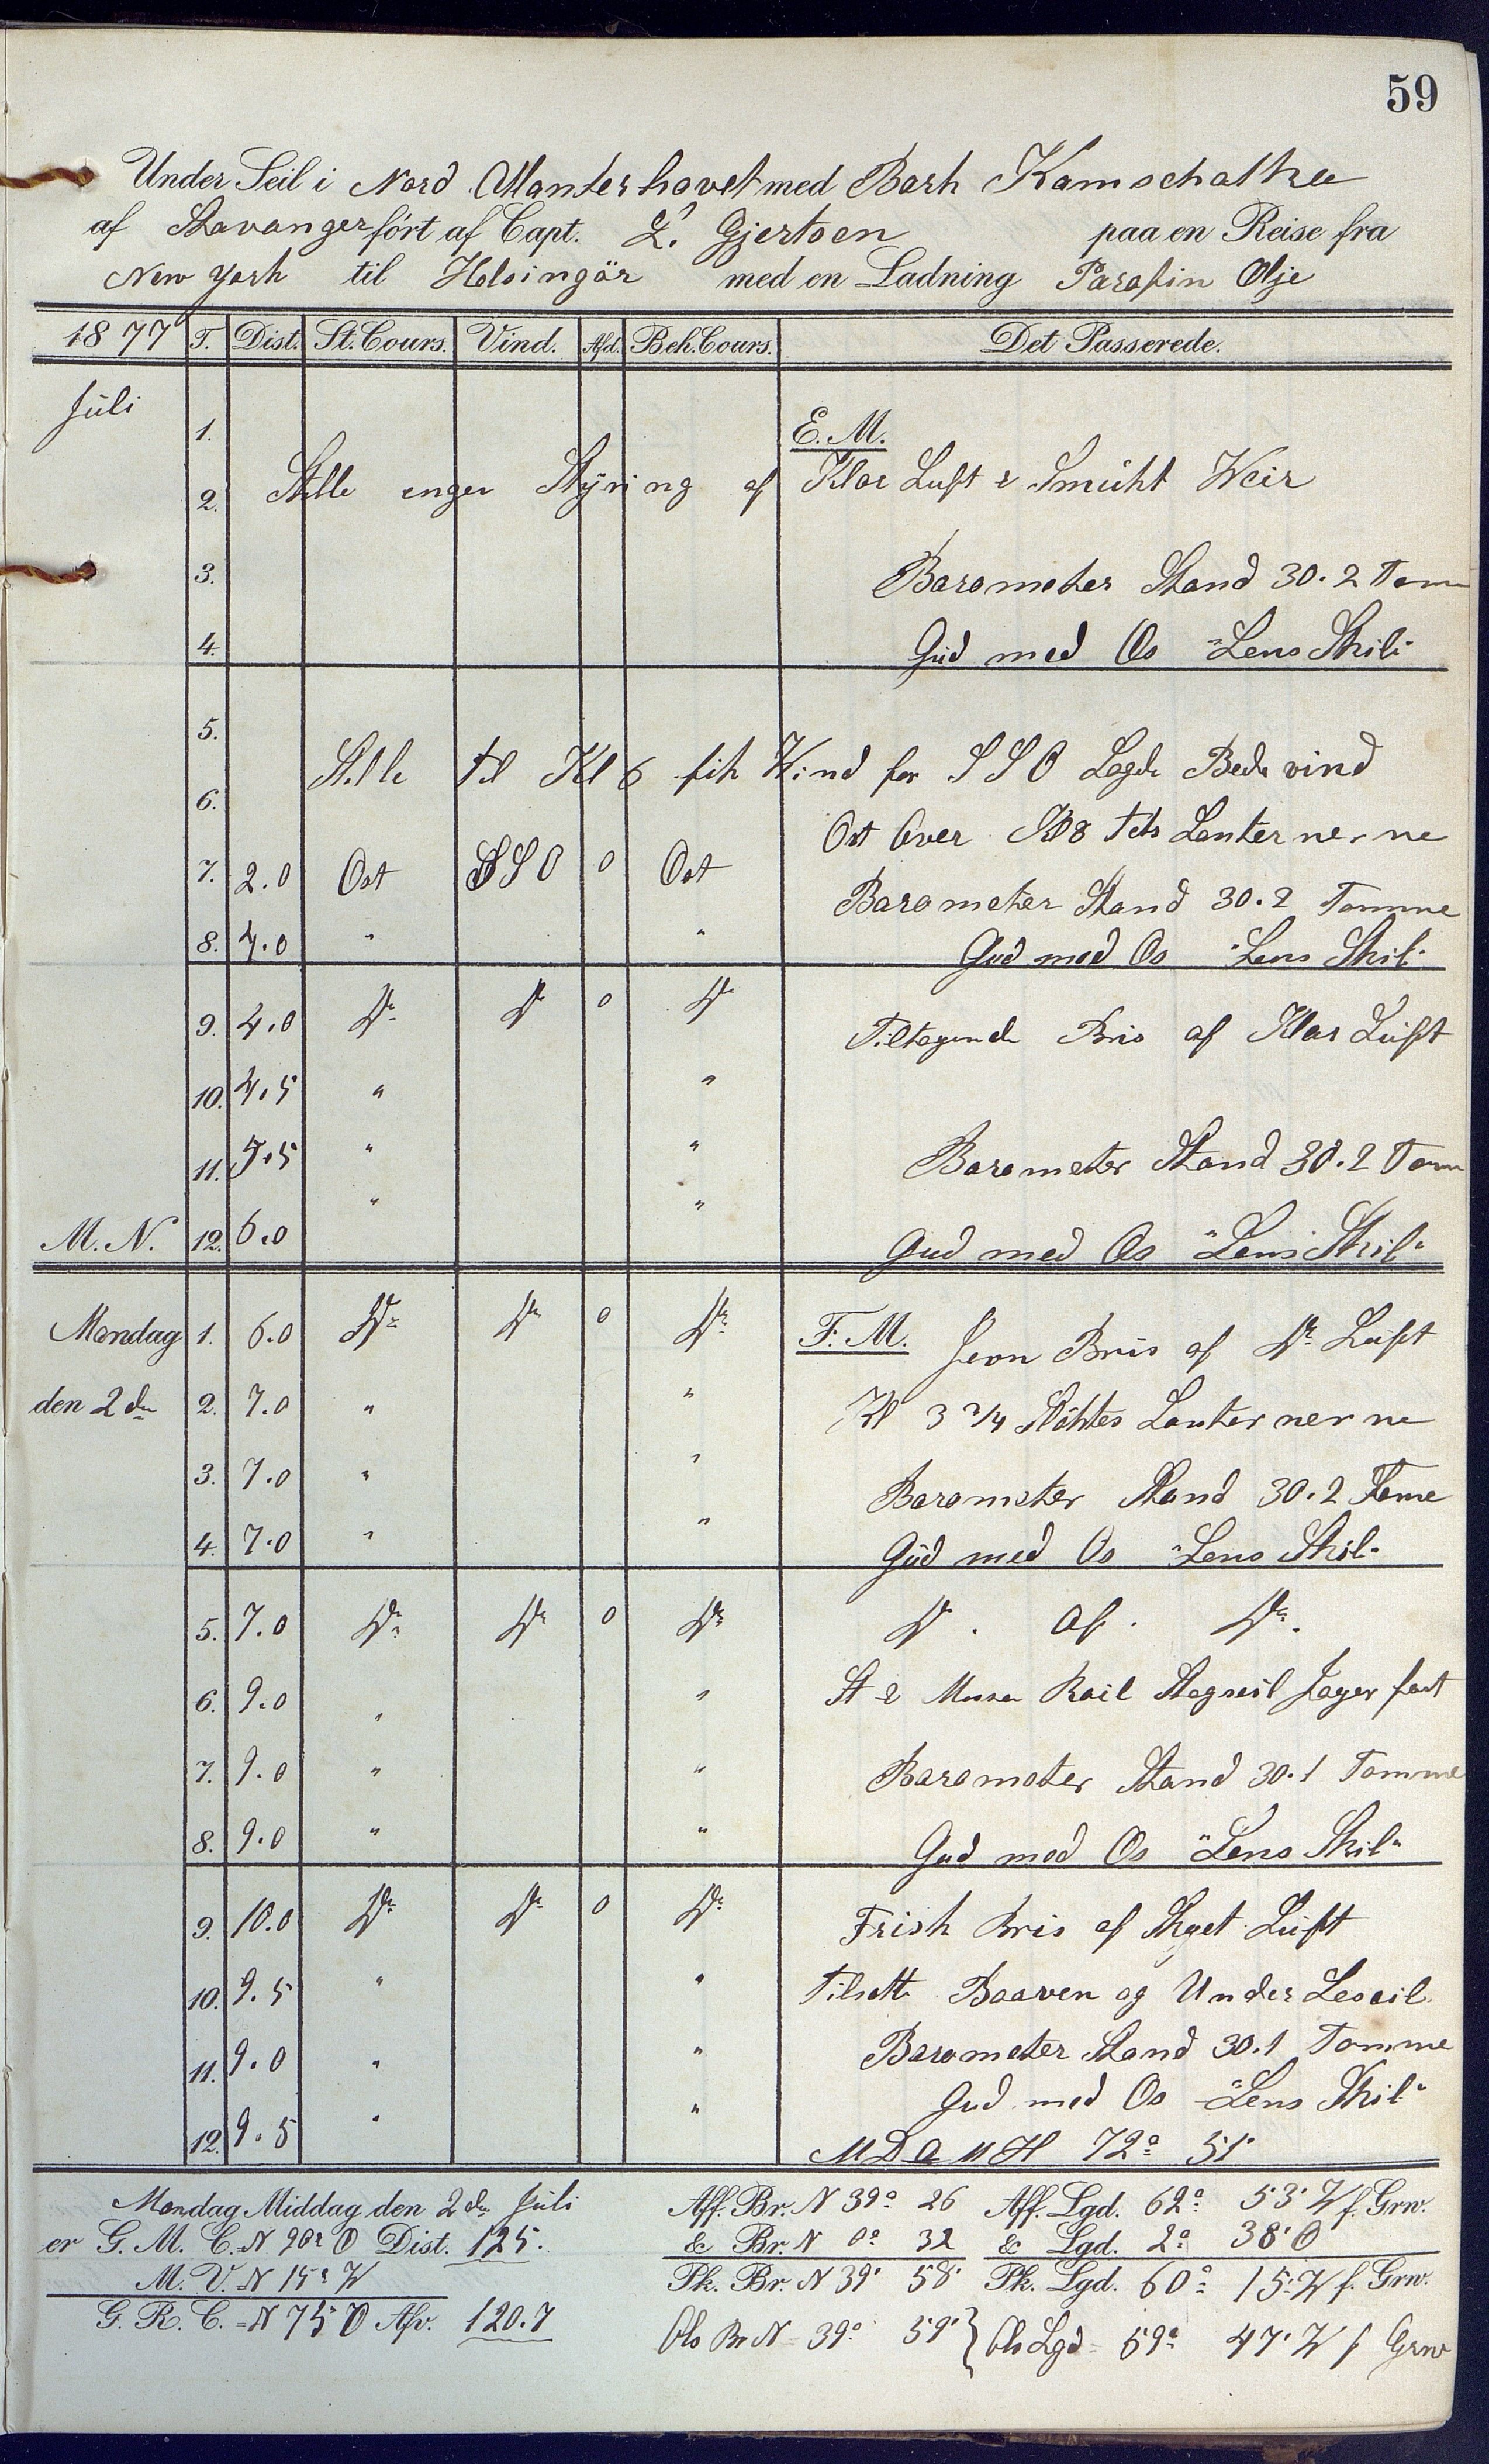 59
Under Seil i Nord Atlanterhavet med Bark Kamschatka
af Stavanger ført af Capt. L. Gjertsen paa en Reise fra
New York til Helsingör med en Ladning Parafin Olje
1877 T. Dist. St. Cours. Vind. Afd. Beh. Cours. Det Passerede.
Juli
1. E. M.
2. Stille ingen Styring af Klar Luft & Smükt Weir
3. Barometer Stand 30.2 Tom
4. Güd med Os "Lens Skib"
5.
6. Stille til Kl 6 fik Wind for SSO Lagde Bede vind
Ost Over Kl 8 Lanternerne
7. 2.0 Ost SSO 0 Ost
Barometer Stand 30.2 Tomme
8. 4.0 " "
Gud med Os "Lens Skib"
9. 4.0 Do Do 0 Do Tiltagende Bris af Klar Lüft
10. 4.5 " "
11. 5.5 " " Barometer Stand 30.2 Tom
M. N. 12. 6.0 " " Gud med Os "Lens Skib"
Mandag 1. 6.0 Do Do 0 Do F. M. Jevn Bris af Do Lüft
den 2den 2. 7.0 " " Kl 3 3/4 Slöktes Lanternerne
3. 7.0 " " Barometer Stand 30.2 Tome
4. 7.0 " " Güd med Os "Lens Skib"
5. 7.0 Do Do 0 Do Do. af. Do.
6. 9.0 " " St & Mesan Roil Stagseil Jager fast
7. 9.0 " " Barometer Stand 30.1 Tomme
8. 9.0 " " Gud med Os "Lens Skib"
9. 10.0 Do Do 0 Do Frisk Bris af Skyet Lüft
10. 9.5 " " Tilsatte Baaven og Under Leseil
11. 9.0 " " Barometer Stand 30.1 Tomme
Gud med Os "Lens Skib"
12. 9.5 " "
72° 51'
Mandag Middag den 2den Juli Aff. Br. N 39° 26 Aff. Lgd. 62° 53' W f. Grw.
er G. M. C. N 90° O Dist. 125. & Br. N 0° 32 & Lgd. 2° 38' O
M. V. N 15° W Pk. Br. N 39° 58' Pk. Lgd. 60° 15' W f. Grw.
G. R. C. = N 75 O Afv. 120.7
Obs Br N = 39° 59' } Obs Lgd = 59° 47' W f Grw